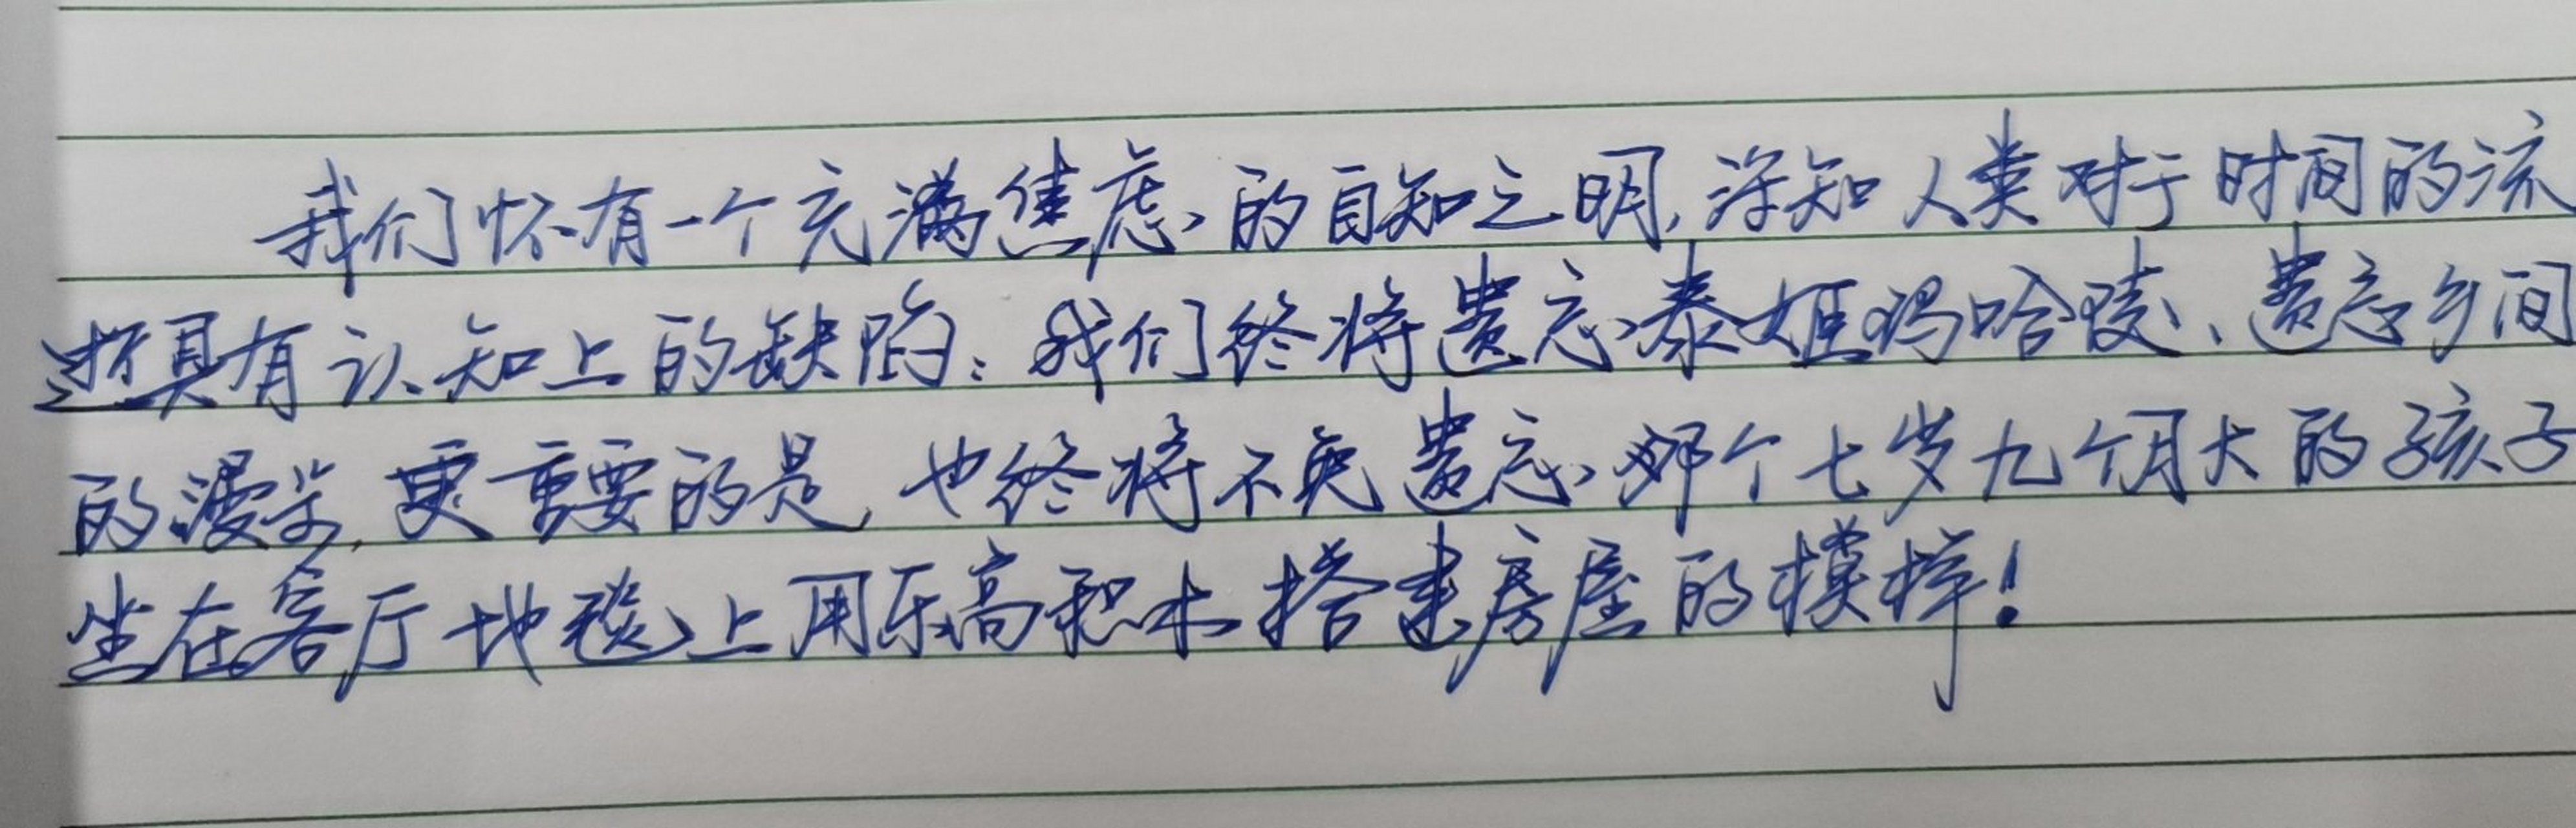 我们怀有一个充满焦虑的自知之明,深知人类对于时间的流
逝具有认知上的缺陷:我们终将遗忘泰姬玛哈陵、遗忘乡间
的漫步,更重要的是,也终将不免遗忘那个七岁九个月大的孩子
坐在客厅地毯上用乐高积木搭建房屋的模样!